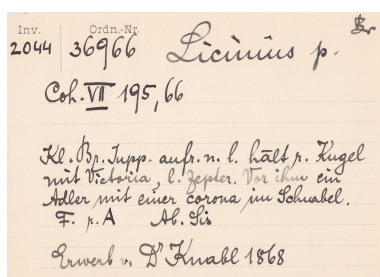 Inv. Ordn.-Nr.
2044 36966 Licinius p.
Coh. VII 195,66
Kl. Br. Jupp. aufr. n. l. hält r. Kugel
mit Victoria, l. Zepter. Vor ihm ein
Adler mit einer corona im Schnabel.
F. r. A Ab. Sis
Erwerb v. Dr Knabl 1868